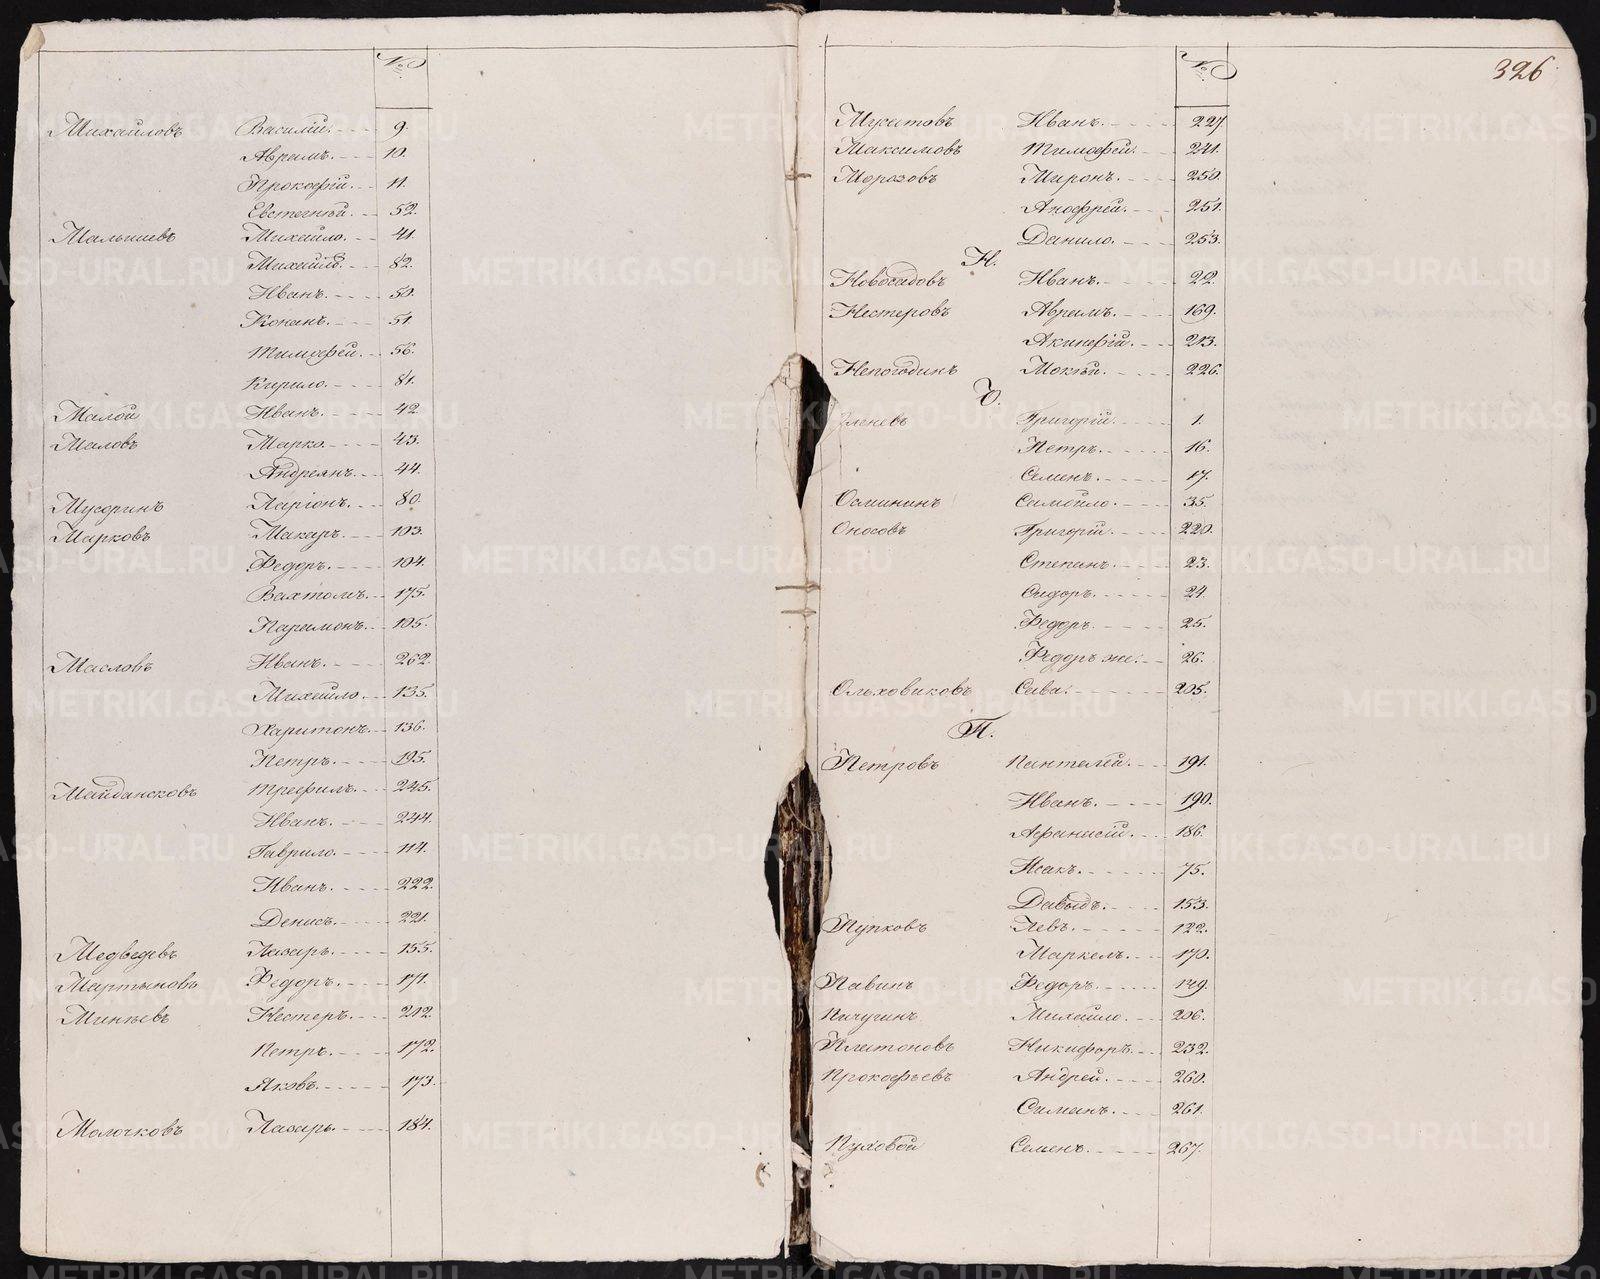 №
Михайловъ Василій. 9.
Аврамъ. 10.
Прокофій. 11.
Евстегнѣй. 52.
Малышевъ Михайло. 41.
Михайло. 82.
Иванъ. 50.
Кононъ. 51.
Тимофей. 56.
Кирило. 81.
Малой Иванъ. 42.
Маловъ Марко. 43.
Андреянъ. 44.
Мусоринъ Ларіонъ. 80.
Марковъ Макаръ. 103.
Федоръ. 104.
175.
Парамонъ. 105.
Масловъ Иванъ. 262.
Михайло. 135.
Харитонъ. 136.
Петръ. 195.
Майдансковъ Трефилъ. 245.
Иванъ. 244.
Гаврило. 114.
Иванъ. 222.
Денисъ. 221.
Медведевъ Лазарь. 155.
Мартыновъ Федоръ. 171.
Минѣевъ Нестеръ. 212.
Петръ. 172.
Яковъ. 173.
Молочковъ Лазарь. 184.
№
326
Мусатовъ Иванъ. 227.
Максимовъ Тимофей. 241.
Морозовъ Миронъ. 250.
Анофрей. 251.
Данило. 253.
Н.
Новосадовъ Иванъ. 22.
Нестеровъ Аврамъ. 169.
Акинфій. 213.
Непогодинъ Мокѣй. 226.
О.
Григорій. 1.
Петръ. 16.
Семенъ. 17.
Осмининъ Самойло. 35.
Оносовъ Григорій. 220.
Степанъ. 23.
Сидоръ. 24.
Федоръ. 25.
Федоръ же. 26.
Ольховиковъ Сава. 205.
П.
Петровъ Пантелей. 191.
Иванъ. 190.
Афанасій. 186.
Исакъ. 75.
Давыдъ. 153.
Пупковъ Левъ. 122.
Маркелъ. 170.
Павинъ Федоръ. 149.
Пичугинъ Михайло. 206.
Платоновъ Никифоръ. 232.
Прокофьевъ Андрей. 260.
Симанъ. 261.
Пуховой Семенъ. 267.
METRIKI.GASO-URAL.RU